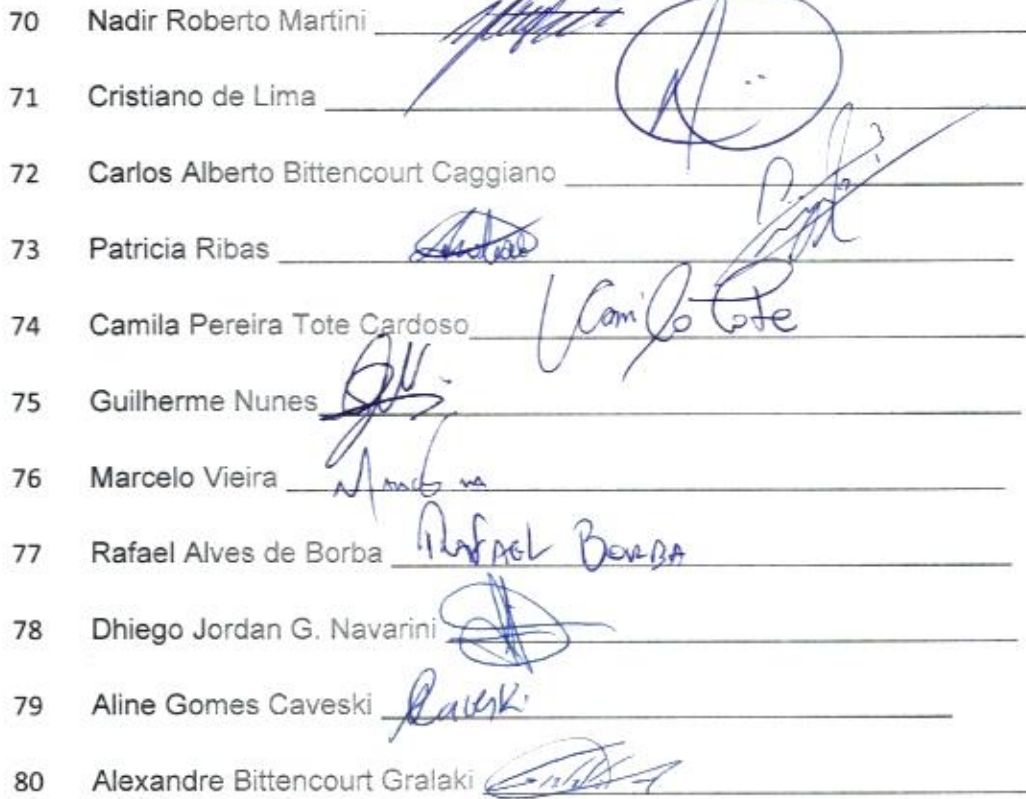 70 Nadir Roberto Martini
71 Cristiano de Lima
72 Carlos Alberto Bittencourt Caggiano
73 Patricia Ribas
74 Camila Pereira Tote Cardoso Camila Tote
75 Guilherme Nunes
76 Marcelo Vieira
77 Rafael Alves de Borba RAFAEL BORBA
78 Dhiego Jordan G. Navarini
79 Aline Gomes Caveski Caveski
80 Alexandre Bittencourt Gralaki